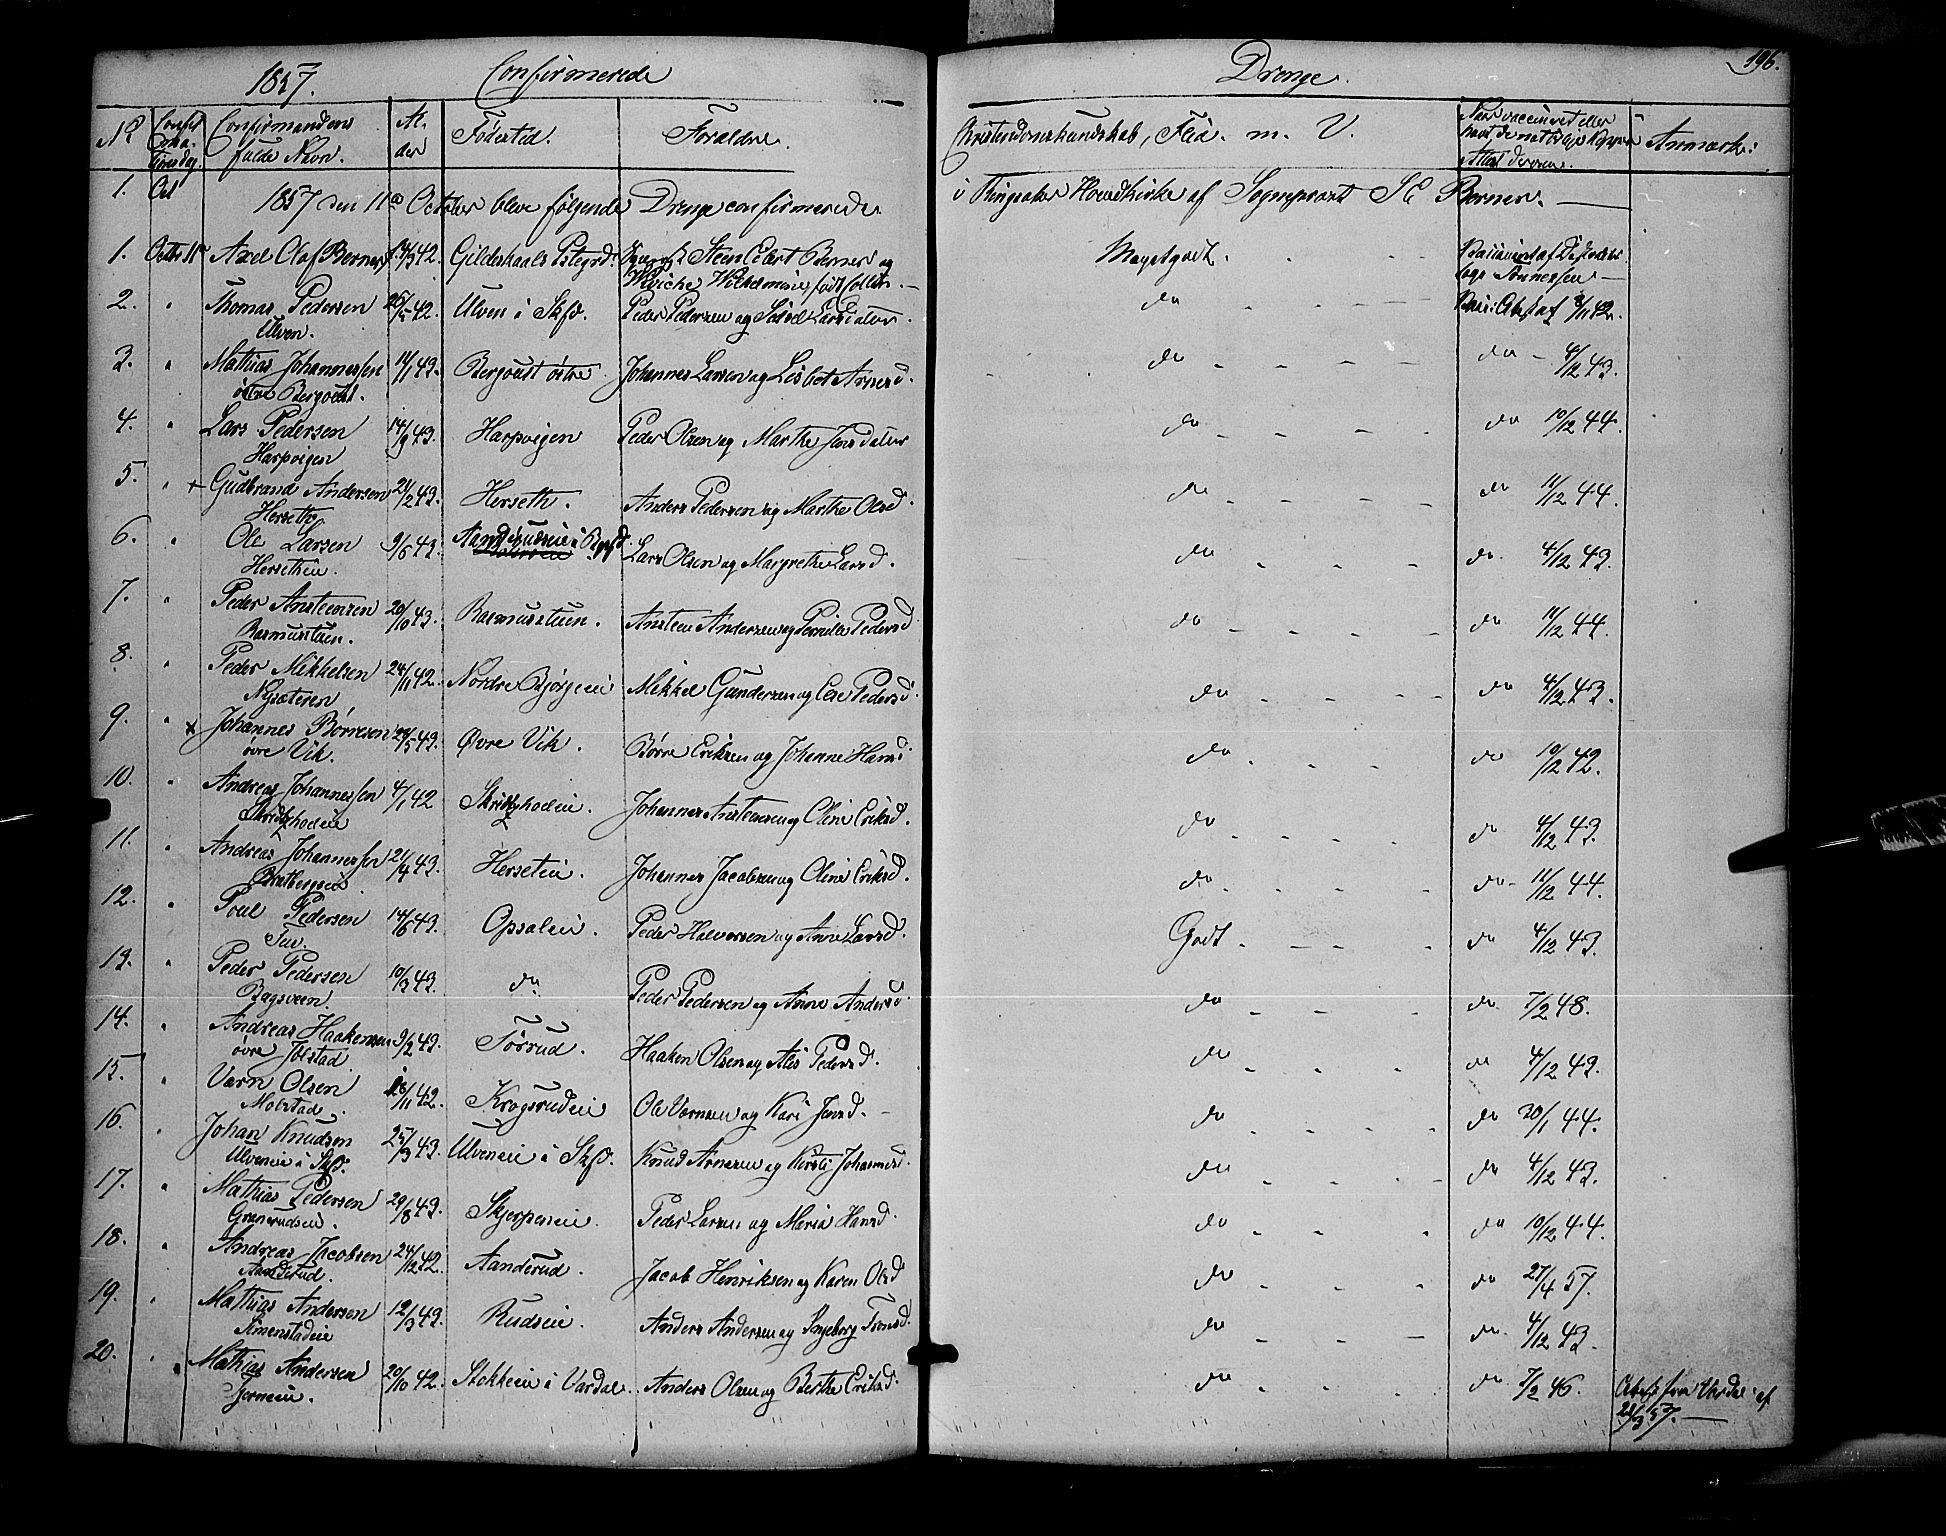 1857. Confirmerede Drenge. 196.
No Confirmationsdag. Confirmandens fulde Navn. Alder Fødested. Forældre. Christendomskundskab, Flid. m. V. Naar vaccineret eller havt de naturlige Kopper Attest derom. Anmærk:
1. Oct 1857 den 11te October bleve følgende Drenge confirmerede i Ringsaker Hovedkirke af Sognepræst Berner.
1. Octbr 11te Axel Olaf Berner 42. Gildeskaals Pstegrd. Steen Berner og Meget godt Vaccineret af
Wilhelmine født
2. " Thomas Pedersen 42. Ulven i Skfd. Peder Pedersen og Larsdatter. do Vacc: Attest af 42.
Ulven.
3. " Mathias Johannessen 11/1 43. Bergvedt østre Johannes Larsen og Lisbet Arnesd. do do 4/12 43.
østre Bergvedt.
4. " Lars Pedersen 14/9 43. Harpvigen Peder Olsen og Marthe Jensdatter do do 10/12 44.
Harpvigen
5. " + Gudbrand Andersen 21/2 43. Herseth. Anders Pedersen og Marthe Olsd. do do 11/12 44.
Herseth
6. " Ole Larsen 9/6 43. Aanderudeie i Lars Olsen og Margrethe Larsd. do do 4/12 43.
Hersetheie.
7. " Peder Ansteensen 20/10 43. Rasmusstuen. Ansteen Andersen og Pernille Pedersd. do do 11/12 44.
Rasmusstuen.
8. " Peder Mikkelsen 24/11 42. Nordre Bjørgeeie Mikkel Gundersen og Else Pedersd. do do 4/12 43.
Nysæteren
9. " x Johannes Børresen 29/5 43. Øvre Vik. Børre Eriksen og Johanne Hansd. do do 10/12 42.
øvre Vik.
10. " Andreas Johannessen 4/1 42 Johannes Ansteensen og Oline Eriksd. do do 4/12 43.
11. " Andreas Johannessen 21/4 43. Herseteie. Johannes Jacobsen og Oline Eriksd. do do 11/12 44.
Bratbergeie
12. " Poul Pedersen 14/6 43. Opsaleie. Peder Halvorsen og Anne Larsd. Godt. do 4/12 43.
Tue.
13. " Peder Pedersen 10/3 43. do Peder Pedersen og Anne Andersd. do do 7/2 48.
Bagsveen.
14. " Andreas Haakensen 9/2 43. Tørrud. Haaken Olsen og Alis Pedersd. do do 4/12 43.
øvre Jølstad
15. " Varn Olsen /11 42. Krogsrudeie Ole Varnsen og Kari Jensd. do do 30/1 44.
Molstad.
16. " Johan Knudsen 25/3 43. Ulveneie i Skfd. Knud Arnesen og Kersti Johannesd. do do 4/12 43.
Ulveneie i Skfd.
17. " Mathias Pedersen 29/8 43. Skjerpeneie. Peder Larsen og Maria Hansd. do do 10/12 44.
Granerudseie.
18. " Andreas Jacobsen 24/12 42. Aanderud. Jacob Henriksen og Karen Olsd. do do 27/4 57.
Aanderud.
19. " Mathias Andersen 12/3 43. Rudseie. Anders Andersen og Ingeborg Tronsd. do do 4/12 43.
Simenstadeie
20. " Mathias Andersen 20/10 42. Stokkeeie i Vardal. Anders Olsen og Berthe Eriksd. do do 7/2 46. Attest fra Vardal af
Gjerneeie. 28/3 57.